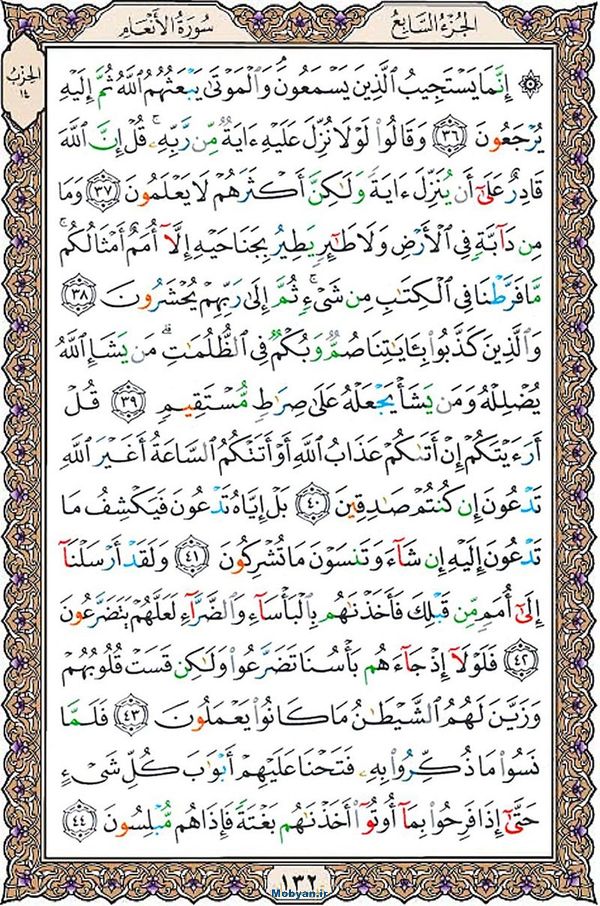 الجُزْءُ السَّابِعُ
سُورَةُ الأَنْعَامِ
الحِزْبُ
١٤
۞ إِنَّمَا يَسْتَجِيبُ ٱلَّذِينَ يَسْمَعُونَۘ وَٱلْمَوْتَىٰ يَبْعَثُهُمُ ٱللَّهُ ثُمَّ إِلَيْهِ
يُرْجَعُونَ ٣٦ وَقَالُوا۟ لَوْلَا نُزِّلَ عَلَيْهِ ءَايَةٌ مِّن رَّبِّهِۦۚ قُلْ إِنَّ ٱللَّهَ
قَادِرٌ عَلَىٰٓ أَن يُنَزِّلَ ءَايَةً وَلَٰكِنَّ أَكْثَرَهُمْ لَا يَعْلَمُونَ ٣٧ وَمَا
مِن دَآبَّةٍ فِى ٱلْأَرْضِ وَلَا طَٰٓئِرٍ يَطِيرُ بِجَنَاحَيْهِ إِلَّآ أُمَمٌ أَمْثَالُكُمۚ
مَّا فَرَّطْنَا فِى ٱلْكِتَٰبِ مِن شَىْءٍۚ ثُمَّ إِلَىٰ رَبِّهِمْ يُحْشَرُونَ ٣٨
وَٱلَّذِينَ كَذَّبُوا۟ بِـَٔايَٰتِنَا صُمٌّ وَبُكْمٌ فِى ٱلظُّلُمَٰتِۗ مَن يَشَإِ ٱللَّهُ
يُضْلِلْهُ وَمَن يَشَأْ يَجْعَلْهُ عَلَىٰ صِرَٰطٍ مُّسْتَقِيمٍ ٣٩ قُلْ
أَرَءَيْتَكُمْ إِنْ أَتَىٰكُمْ عَذَابُ ٱللَّهِ أَوْ أَتَتْكُمُ ٱلسَّاعَةُ أَغَيْرَ ٱللَّهِ
تَدْعُونَ إِن كُنتُمْ صَٰدِقِينَ ٤٠ بَلْ إِيَّاهُ تَدْعُونَ فَيَكْشِفُ مَا
تَدْعُونَ إِلَيْهِ إِن شَآءَ وَتَنسَوْنَ مَا تُشْرِكُونَ ٤١ وَلَقَدْ أَرْسَلْنَآ
إِلَىٰٓ أُمَمٍ مِّن قَبْلِكَ فَأَخَذْنَٰهُم بِٱلْبَأْسَآءِ وَٱلضَّرَّآءِ لَعَلَّهُمْ يَتَضَرَّعُونَ
٤٢ فَلَوْلَآ إِذْ جَآءَهُم بَأْسُنَا تَضَرَّعُوا۟ وَلَٰكِن قَسَتْ قُلُوبُهُمْ
وَزَيَّنَ لَهُمُ ٱلشَّيْطَٰنُ مَا كَانُوا۟ يَعْمَلُونَ ٤٣ فَلَمَّا
نَسُوا۟ مَا ذُكِّرُوا۟ بِهِۦ فَتَحْنَا عَلَيْهِمْ أَبْوَٰبَ كُلِّ شَىْءٍ
حَتَّىٰٓ إِذَا فَرِحُوا۟ بِمَآ أُوتُوٓا۟ أَخَذْنَٰهُم بَغْتَةً فَإِذَا هُم مُّبْلِسُونَ ٤٤
١٣٢
Mobyan.ir